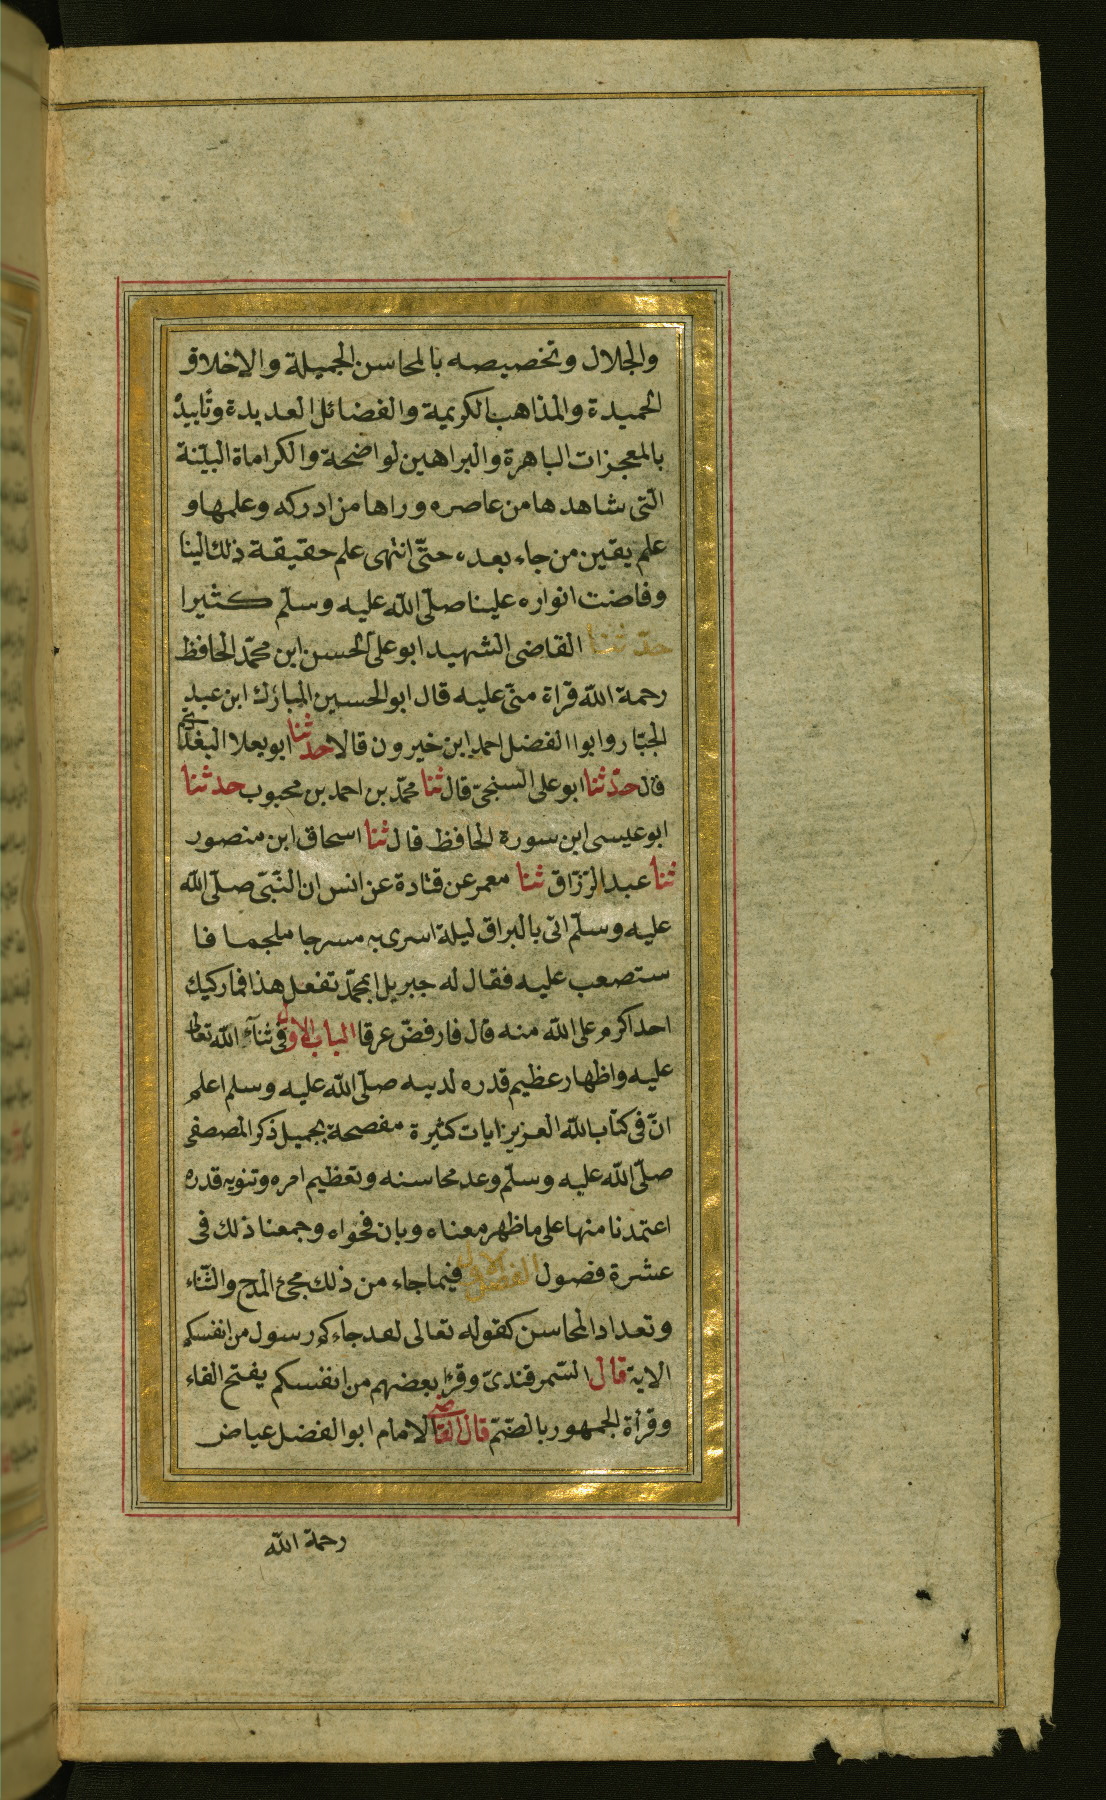 والجلال وتخصيصه بالمحاسن الجميلة والاخلاق
الحميدة والمذاهب الكريمة والفضائل العديدة وتأييدُ
بالمعجزات الباهرة والبراهين لواضحة والكراماة البيّنة
الّتى شاهدها من عاصره وراها من ادركه وعلمها و
علم يقين من جاء بعده حتّى انتهى علم حقيقة ذلك الينا
وفاضت انواره علينا صلّى اللّه عليه وسلّم كثيرا
حدّثنا القاضى الشهيد ابو على الحسن ابن محمّد الحافظ
رحمة اللّه قراة منّى عليه قال ابو الحسين المبارك ابن عبد
الجبّار وابوا الفضل احمد ابن خيرون قالا حدثنا ابو يعلا البغدا
قال حدّثنا ابو على السنجىّ قال ثنا محمّد بن احمد بن محبوب حدثنا
ابو عيسى ابن سورة الحافظ قال ثنا اسحاق ابن منصور
ثنا عبد الرّزّاق ثنا معمر عن قتادة عن انس ان النّبّى صلّى اللّه
عليه وسلّم اتى بالبراق ليلة اسرى به مسرجا ملجما فا
ستصعب عليه فقال له جبريل ابمحمّد تفعل هذا فما ركبك
احد اكرم على اللّه منه قال فارفضّ عرقا الباب الاوّل فى ثنآء اللّه تعالى
عليه واظهار عظيم قدره لديه صلّى اللّه عليه وسلم اعلم
انّ فى كتاب اللّه العزيز ايات كثيرة مفصحة بجميل ذكر المصصفى
صلّى اللّه عليه وسلّم وعد محاسنه وتعظيم امره وتنويه قدره
اعتمدنا منها على ما ظهر معناه وبان فحواه وجمعنا ذلك فى
عشرة فصول الفصل الاول فيما جاء من ذلك مجئ المدح والثّناء
وتعداد المحاسن كقوله تعالى لقد جاءكم رسول من انفسكم
الاية قال السّمرقندىّ وقرا بعضهم من انفسكم بفتح الفاء
وقرأة الجمهور بالضّمّ قال القاضى الامام ابو الفضل عياض
رحمة اللّه